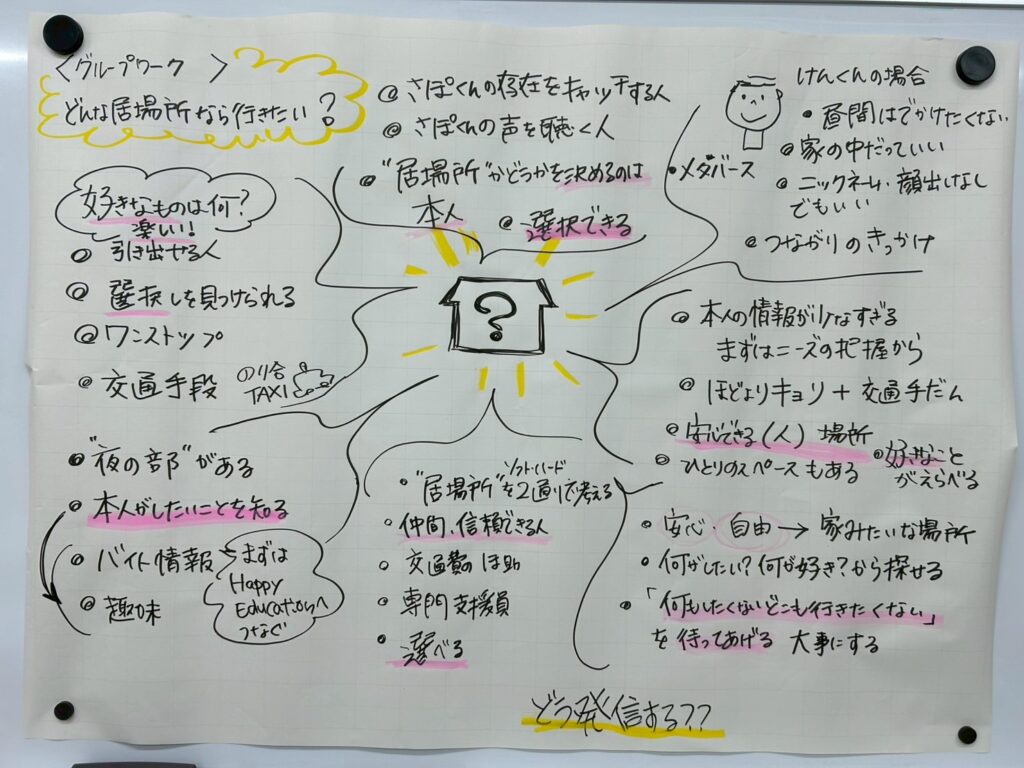 〈グループワーク 〉
どんな居場所なら行きたい?
◎さぽくんの存在をキャッチする人
◎さぽくんの声を聴く人
◎"居場所"かどうかを決めるのは
本人
◎選択できる
けんくんの場合
• 昼間はでかけたくない
◎家の中だっていい
• ニックネーム・顔出しなし
でもいい
◎つながりのきっかけ
•メタバース
好きなものは何?
楽しい!
◎引き出せる人
◎選択しを見つけられる
◎ワンストップ
◎交通手段
のり合
TAXI
?
◎本人の情報が少なすぎる
まずはニーズの把握から
◎ほどよいキョリ+交通手だん
◎安心できる(人)場所
◎ひとりのスペースもある
•好きなこと
がえらべる
◎"夜の部"がある
• 本人がしたいことを知る
• バイト情報
まずは
Happy
Educationへ
つなぐ
◎趣味
ソフト・ハード
• "居場所"を2通りで考える
• 仲間・信頼できる人
◦ 交通費のほ助
• 専門支援員
◦ 選べる
• 安心・自由→家みたいな場所
• 何がしたい?何が好き?から探せる
• 「何もしたくないどこも行きたくない」
を待ってあげる 大事にする
どう発信する??